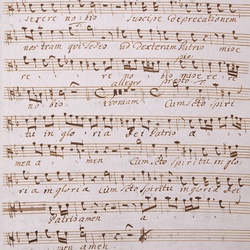 serere nobis Suscipe deprecationem
nostram qui sedes ad Dexteram Patris mise
re re re nobis misere
allegro presto
nobis quoniam Cum Scto Spiri
tu in glo ria dei Patris a
men a men Cum Scto Spiritu in glo
ria in gloria Cum Scto Spiritu in gloria dei
Patris amen a
men amen